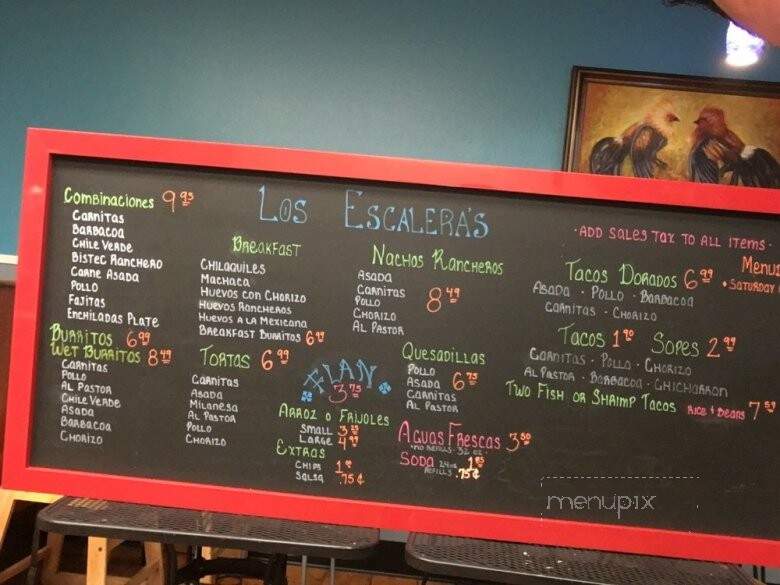 LOS ESCALERA'S
·ADD SALES TAX TO ALL ITEMS·
COMBINACIONES 9 95
CARNITAS
BARBACOA
CHILE VERDE
BISTEC RANCHERO
CARNE ASADA
POLLO
FAJITAS
ENCHILADAS PLATE
BURRITOS 6 99
WET BURRITOS 8 49
CARNITAS
POLLO
AL PASTOR
CHILE VERDE
ASADA
BARBACOA
CHORIZO
BREAKFAST
CHILAQUILES
MACHACA
HUEVOS CON CHORIZO
HUEVOS RANCHEROS
HUEVOS A LA MEXICANA
BREAKFAST BURRITOS 6 49
TORTAS 6 99
CARNITAS
ASADA
MILANESA
AL PASTOR
POLLO
CHORIZO
FLAN
3.75
ARROZ O FRIJOLES
SMALL 3 25
LARGE 4 99
EXTRAS
CHIPS
SALSA .75¢
NACHOS RANCHEROS
8 49
ASADA
CARNITAS
POLLO
CHORIZO
AL PASTOR
QUESADILLAS
6 75
POLLO
ASADA
CARNITAS
AL PASTOR
AGUAS FRESCAS 3 50
·NO REFILLS· 32 OZ·
SODA 24oz 1 85
REFILLS .75¢
TACOS DORADOS 6 99
ASADA · POLLO · BARBACOA
CARNITAS · CHORIZO
·SATURDAY
TACOS 1 90 SOPES 2 99
CARNITAS · POLLO · CHORIZO
AL PASTOR · BARBACOA · CHICHARRON
TWO FISH OR SHRIMP TACOS RICE & BEANS 7 59
menupix